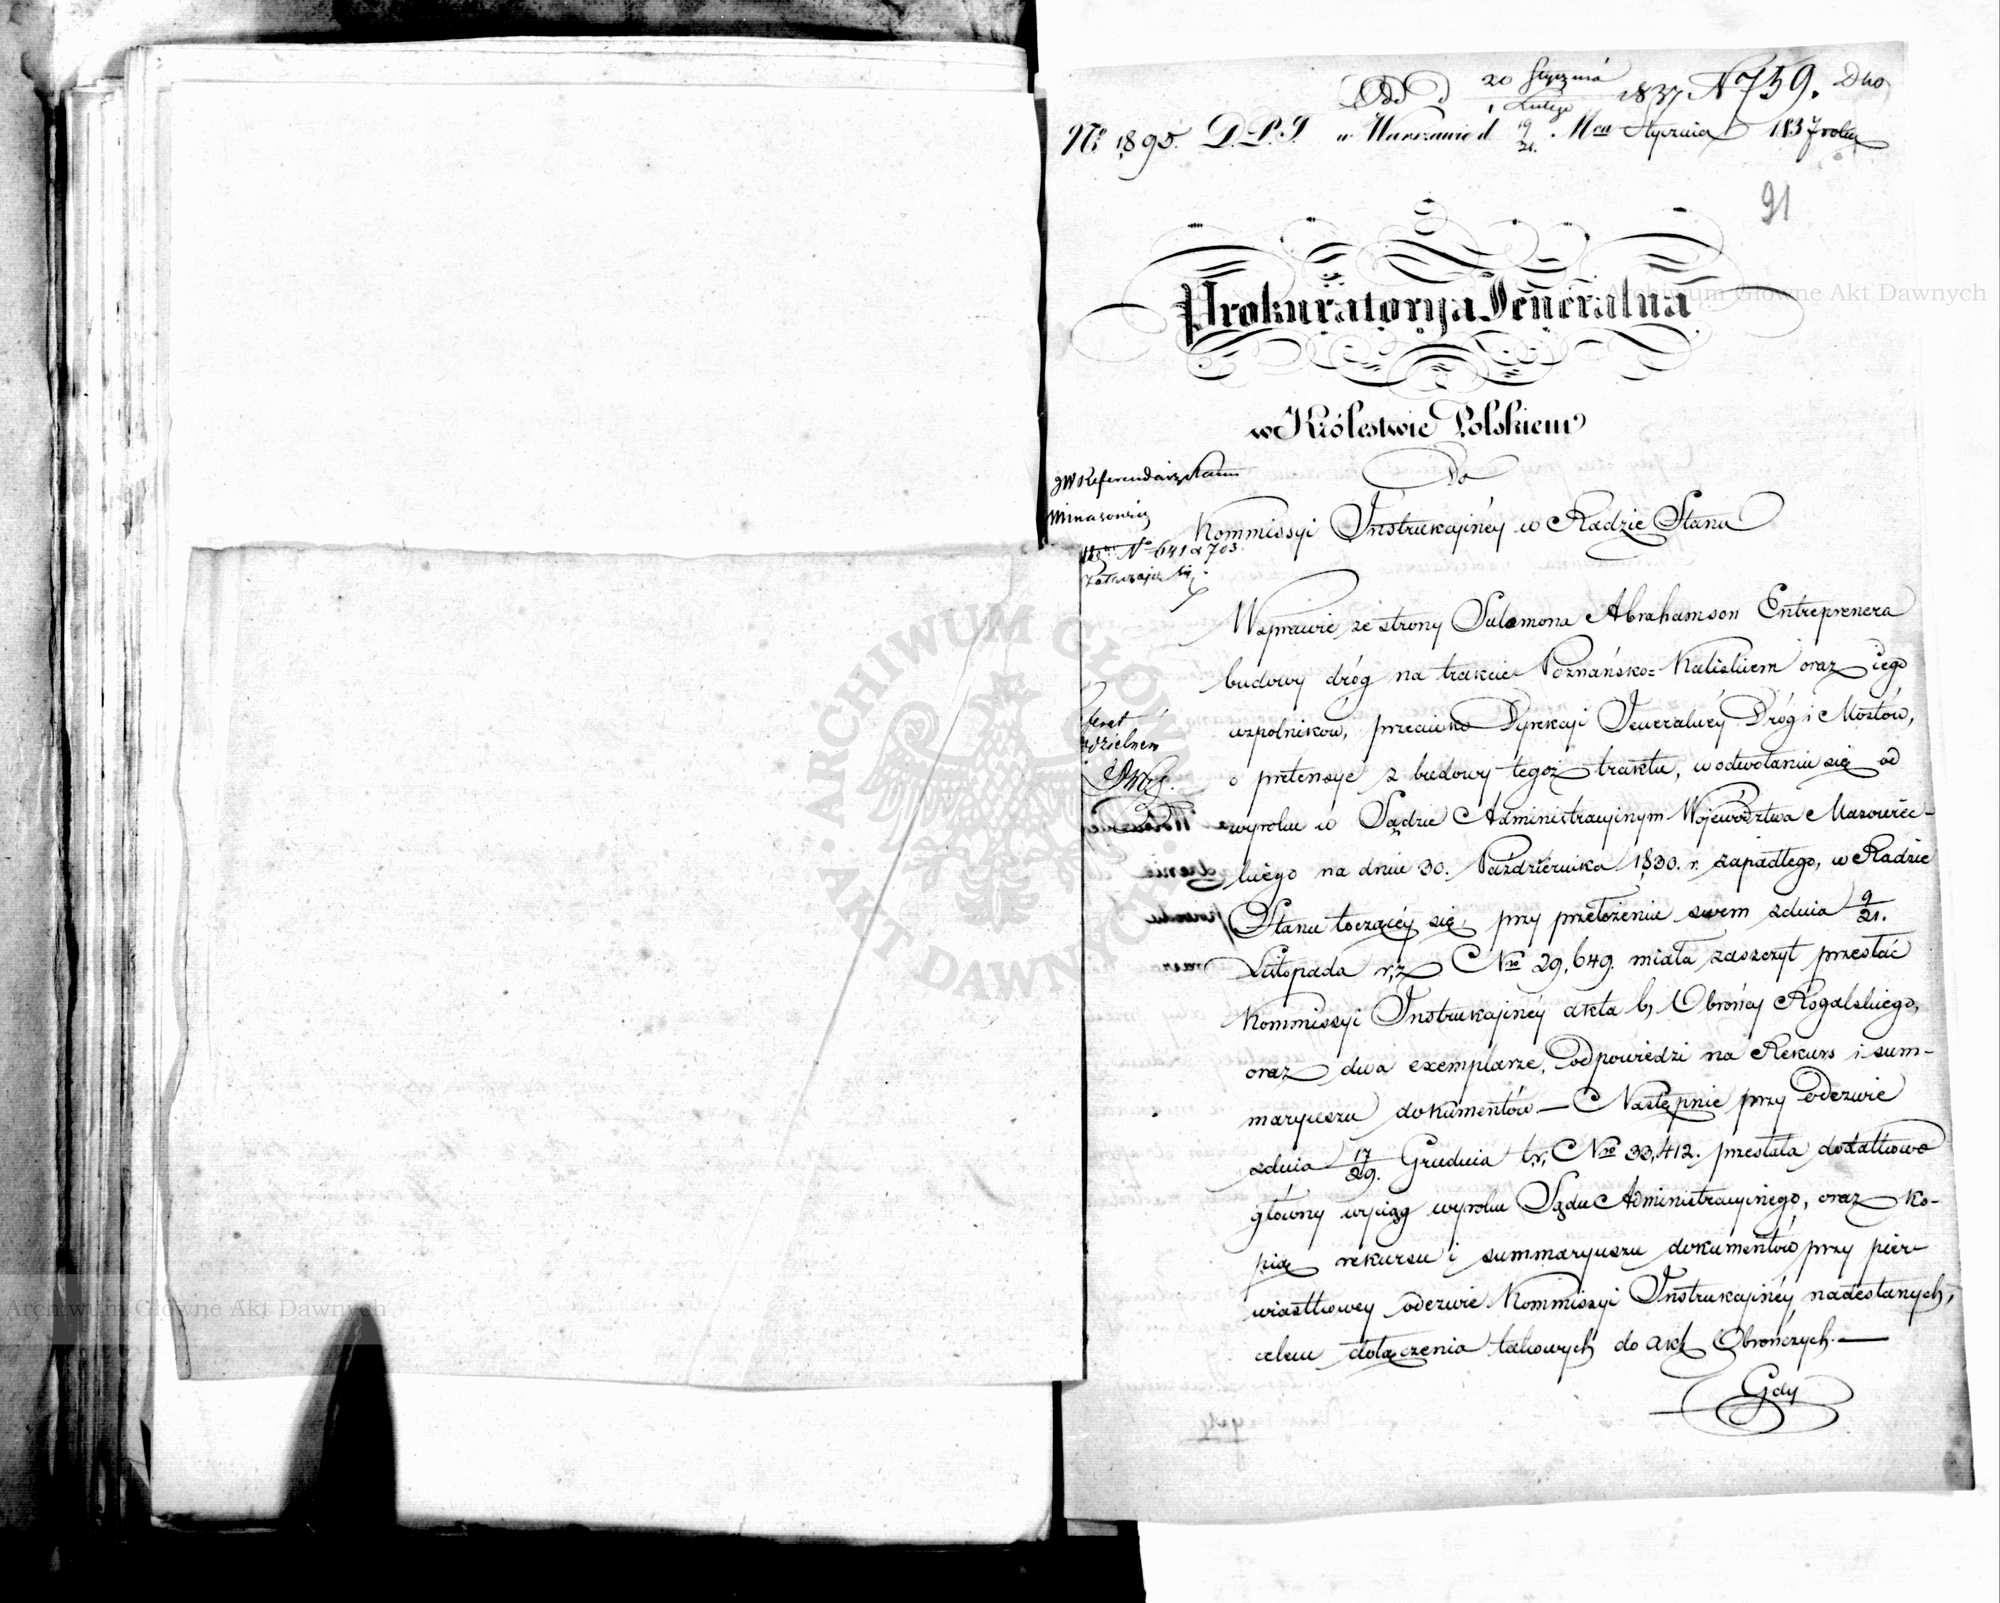 Odd d 20 Stycznia / 1 Lutego 1837 N 759. Duo
No 1895. D.P.J. w Warszawie d 19/31. Mca Stycznia 1837 roku
91
Prokuratorya Jeneralna
w Królestwie Polskiem
Do
JW Referendarz Stanu
Minasowicz
Kommissyi Instrukcyinéy w Radzie Stanu
No 641 & 703
załączaią się
W sprawie ze strony Salomona Abrahamson Entreprenera
budowy dróg na trakcie Poznańsko=Kaliskiem oraz iego
wspolników, przeciwko Dyrekcyi Jeneralnéy Dróg i Mostów,
o pretensye z budowy tegoż traktu, w odwołaniu się od
wyroku w Sądzie Administracyinym Województwa Mazowiec-
kiego na dniu 30. Października 1830. r. zapadłego, w Radzie
Stanu toczącéy się, przy przełożeniu swem z dnia 9/21.
Listopada r. z. Nro 29,649. miała zaszczyt przesłać
Kommissyi Instrukcyinéy akta b. Obrońcy Rogalskiego,
oraz dwa exemplarze, odpowiedzi na Rekurs i sum-
maryusza dokumentów — Następnie przy odezwie
z dnia 17/29. Grudnia t. r. Nro 33,412. przesłała dodatkowo
główny wyciąg wyroku Sądu Administracyinego, oraz ko-
pią rekursu i summaryusza dokumentów przy pier-
wiastkowey odezwie Kommissyi Instrukcyinéy nadesłanych,
celem dołączenia takowych do akt Obrończych. —
Gdy
Archiwum Główne Akt Dawnych
ARCHIWUM GŁÓWNE AKT DAWNYCH
Archiwum Główne Akt Dawnych